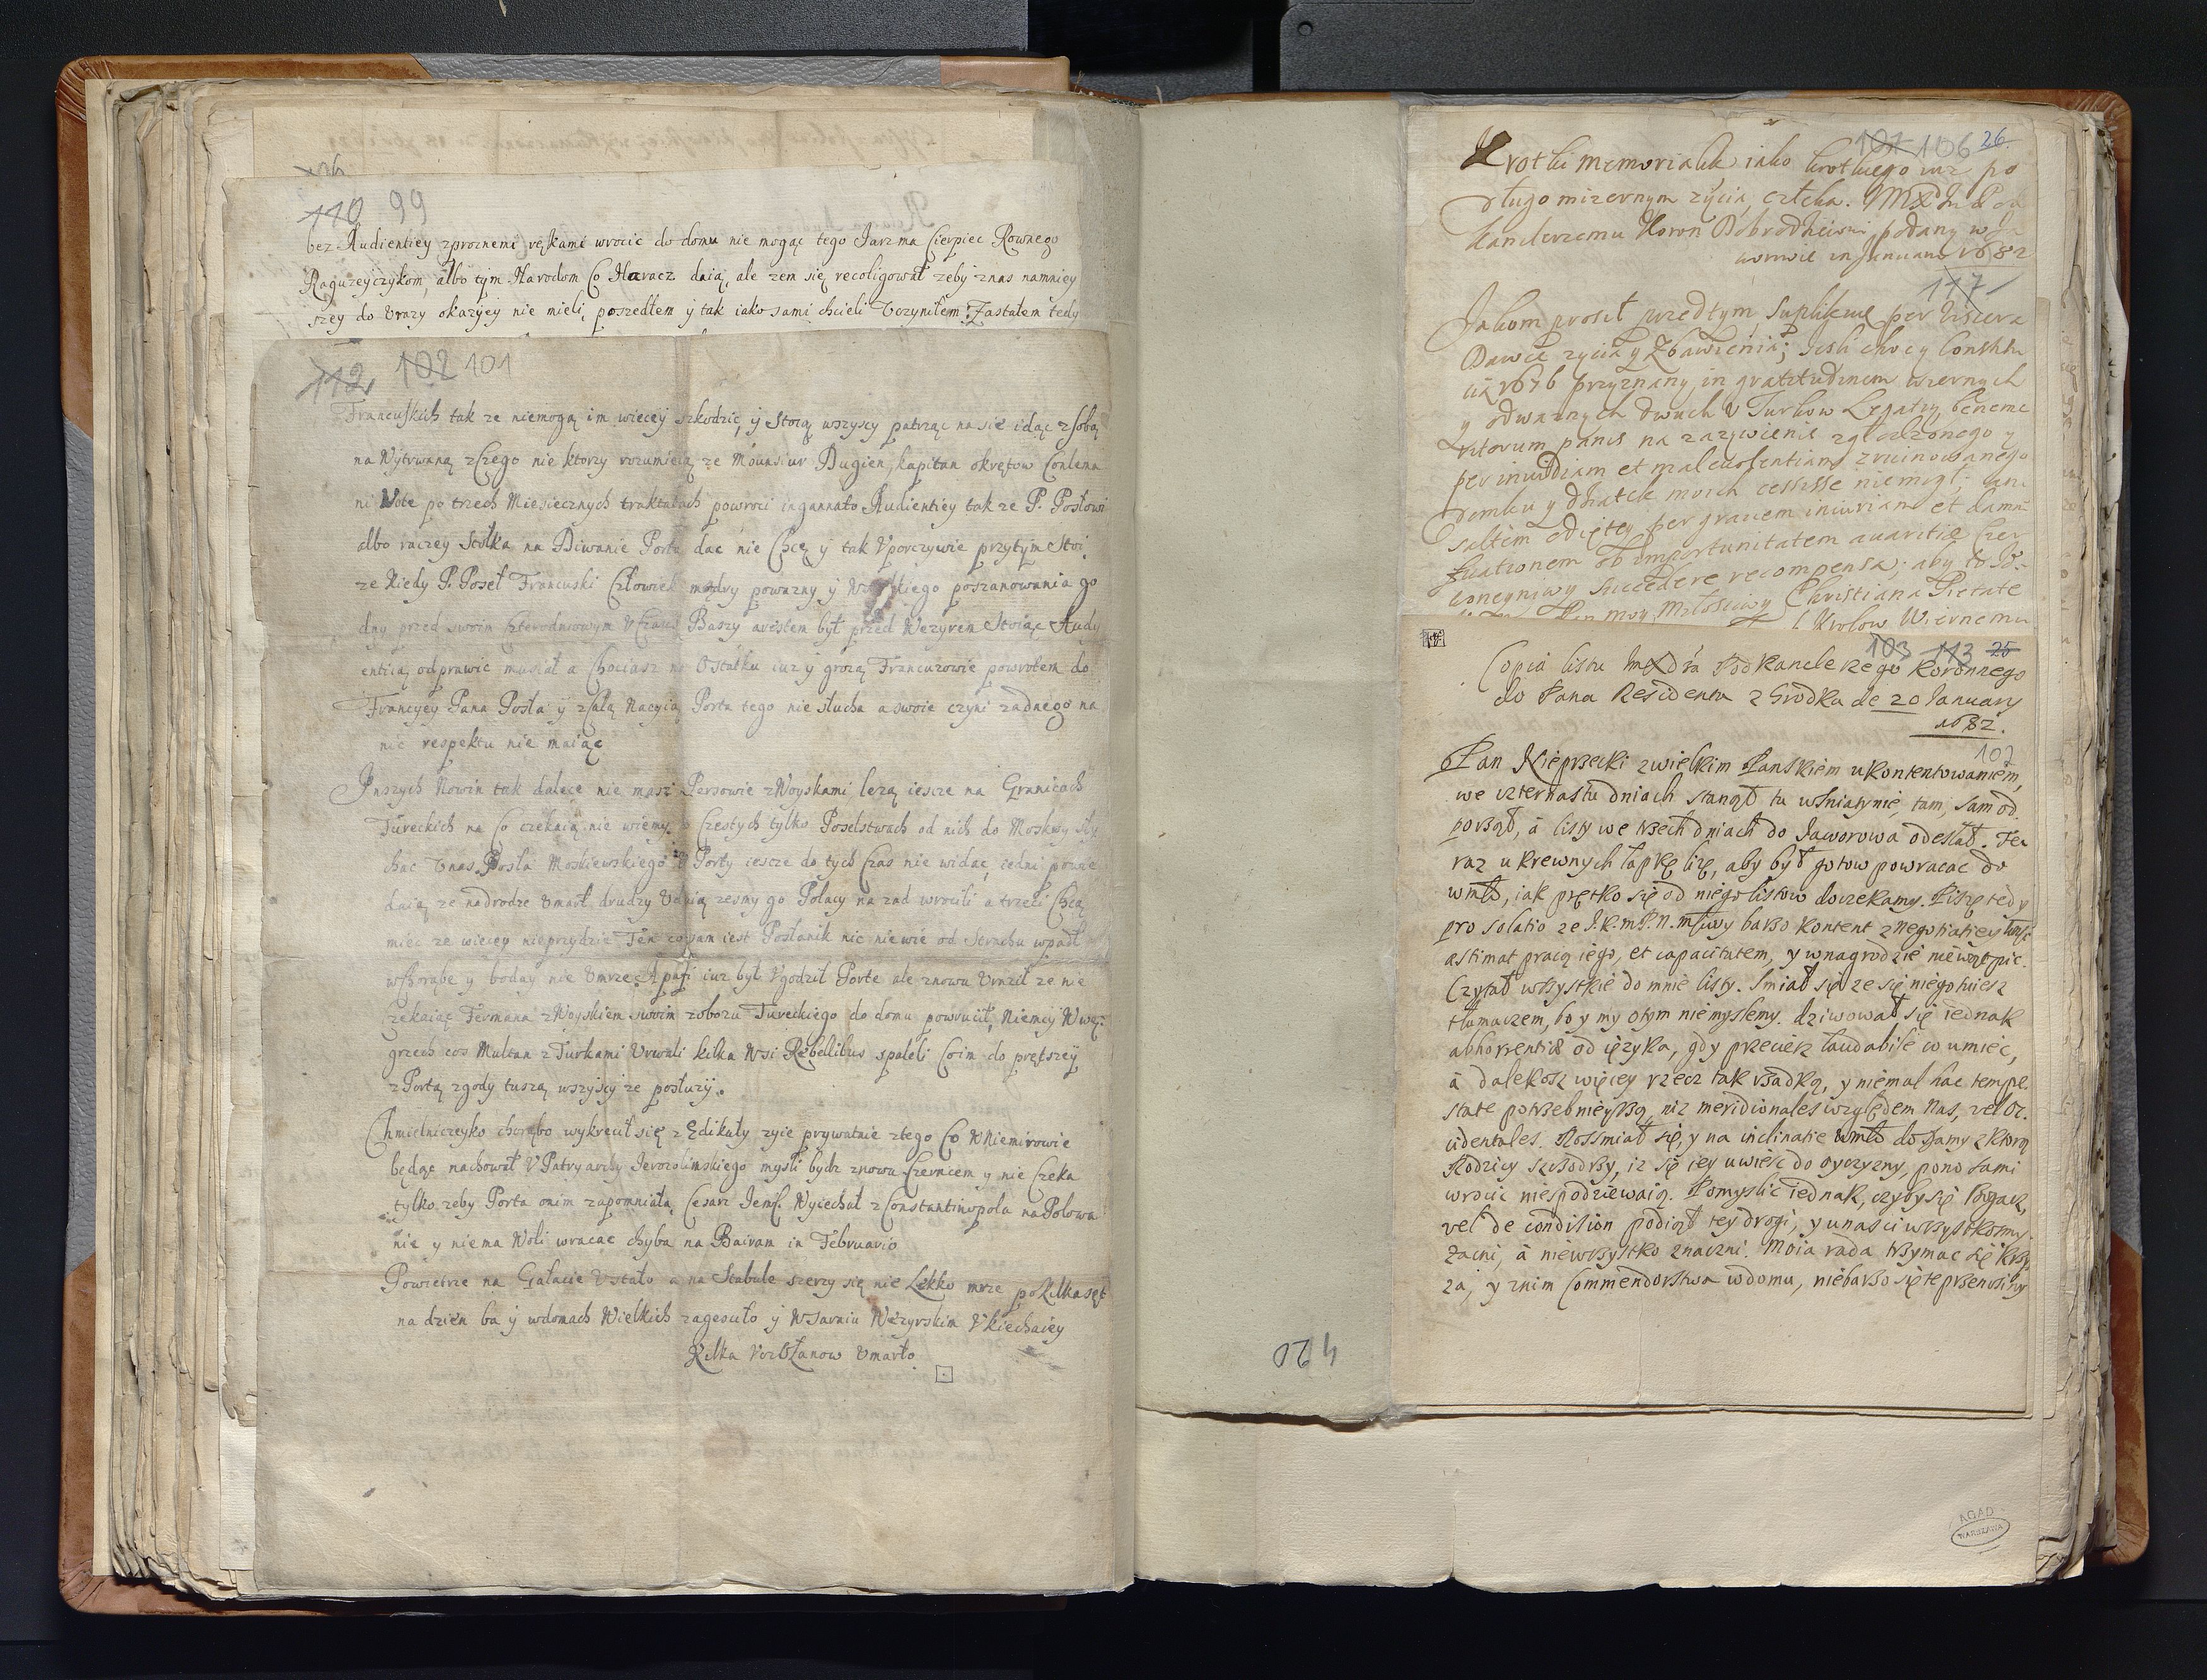 110 99
bez Audientiey zproznemi rękami wrocic do domu nie mogąc tego Jarzma Cierpiec Rownego
Raguzeyczykom, albo tym Narodom Co Haracz daią, ale zem się recoligował zeby znas namniey
szey do Urazy okazyey nie mieli, poszedłem ÿ tak iako sami chcieli Uczyniłem Zastałem tedy
112 102 101
Francuskich tak ze niemogą im więcey szkodzic, ÿ Stoią wszyscy patrząc na sie idąc z sobą
na Wytrwaną zCzego nie ktorzy rozumieią ze Mounsiur Dugien, kapitan okrętow
po trzech Miesiecznych traktatach powroci ingannato Audientiey tak ze P. Posłowi
albo raczey Stołka na Diwanie Porta dac nie Chcę ÿ tak Uporczywie przytym Stoi
ze kiedy P. Poseł Francuski Człowiek mądry powazny ÿ poszanowania go
dny przed swoim Czterodniowym Baszy aresztem był przed Wezyrem Stoiąc Audy
entią odprawic musiał a Chociasz na Ostatku iuz ÿ grozą Francuzowie powrotem do
Francyey Pana Posła ÿ zCałą Nacyią Porta tego nie słucha a swoie czyni zadnego na
nic respektu nie maiąc
Inszych Nowin tak dalece nie masz Persowie zWoyskami lezą iescze na Granicach
Tureckich na Co czekaią nie wiemy o Częstych tylko Poselstwach od nich do Moskwy sły
chac Unas Posła Moskiewskiego u Porty iescze do tych Czas nie widac, iedni powie
daią ze na drodze Umarł drudzy Udaią zesmy go Polacy na zad wrocili a trzeci Chcą
miec ze więcey nieprzydzie Ten co sam iest Posłanik nic niewie od Strachu wpadł
wChorąbę y boday nie Umrze Apafi iuz był Ugodził Porte ale znowu Uraził ze nie
czekaiąc Fermana zWoyskiem swoim zobozu Tureckiego do domu powrucił, Niemcy W wę
grzech cos Multan z Turkami Urwali kilka Wsi Rebellibus spaleli Co im do prętszey
z Portą zgody tuszą wszyscy ze posłuzÿ.
Chmielniczeyko chorąbo wykrecił się z Edikuły zyie prywatnie ztego Co WNiemirowie
będąc nachował U Patryarchy Jerozolimskiego mysli bydz znowu Czerncem y nie Czeka
tylko zeby Porta onim zapomniała, Cesarz Jemsc Wyiechał z Constantinopola na Polowa
nie y niema Woli wracac chyba na Bairam in Februario
Powietrze na Gałacie Ustało a na Stabule szerzy się nie Lekko mrze po kilkaset
na dzien ba ÿ wdomach Wielkich zagesciło ÿ W Saraiu Wezyrskim U kiechaiey
kilka Umarło
420
101 106 26
Krotki memorialik iako krotkiego iuz po
długo mizernym zyciu, człeka.
Kanclerzemu Koron Dobrodzieiowi podany w Ja
worowie in Januario 1682
117
Jakom prosił przedtym Suplikuię per viscera
Dawce zycia y Zbawienia; iesli chocy Constitu
cią 1676 przyznany, in gratitudinem wiernych
y odwaznych dwuch U Turkow Legatij, beneme
ritorum panis na zazywienie zgłodzonego y
per inuidiam et maleuolentiam zruinowanego
domku y dziatek moich cessisse niemogł; an
saltem odiętey per grauem iniuriam et damn
ob importunitatem auaritiae
succedere recompensa; aby to
Pan moy Miłosciwy Christiana Pietate
Krolow Wiernemu
103 113 25
Copia listu Podkanclerzego Koronnego
do Pana Residenta z Grodka de 20 January
1682.
107
Pan Nieprzecki zwielkim Panskiem ukontentowaniem,
we czternastu dniach stanął tu wSniatynie, tam, sam od
począł, á listy we trzech dniach do Jaworowa odesłał. Te
raz u krewnych łapkę liże, aby był gotow powracac do
wmsci, iak prętko się od niego listow doczekamy. Piszę tedy
pro solatio ze J.K.m P.N. mwy barzo kontent z negotiatiey
astimat pracą iego, et capacitatem, y wnagrodzie niewątpic.
Czytał wszystkie do mnie listy. Smiał się ze się niegotuiesz
tłumaczem, bo y my otym niemyslemy. dziwował się iednak
abhorrentia od ięzyka, gdy przeciez laudabile co umiec,
á dalekosz więcey rzecz tak rzadką, y niemal hac tempe
state potrzebnieyszą, niz meridionales względem nas, vel oc
cidentales. Rossmiał się, y na inclinatie wmsci do Damy z ktorą
Rodzicy szkodzy, iz się iey uwiesc do oyczyzny, pono sami
wrocic niespodziewaią. Pomyslic iednak, czyby się
vel de condition podiął tey drogi, y unas ci wszystkosmy
zacni, á niewszystko znaczni. Moia rada trzymac się krzy
za, y znim Commendorstwa wdomu, niebarzo się te przenosiny
AGAD
WARSZAWA